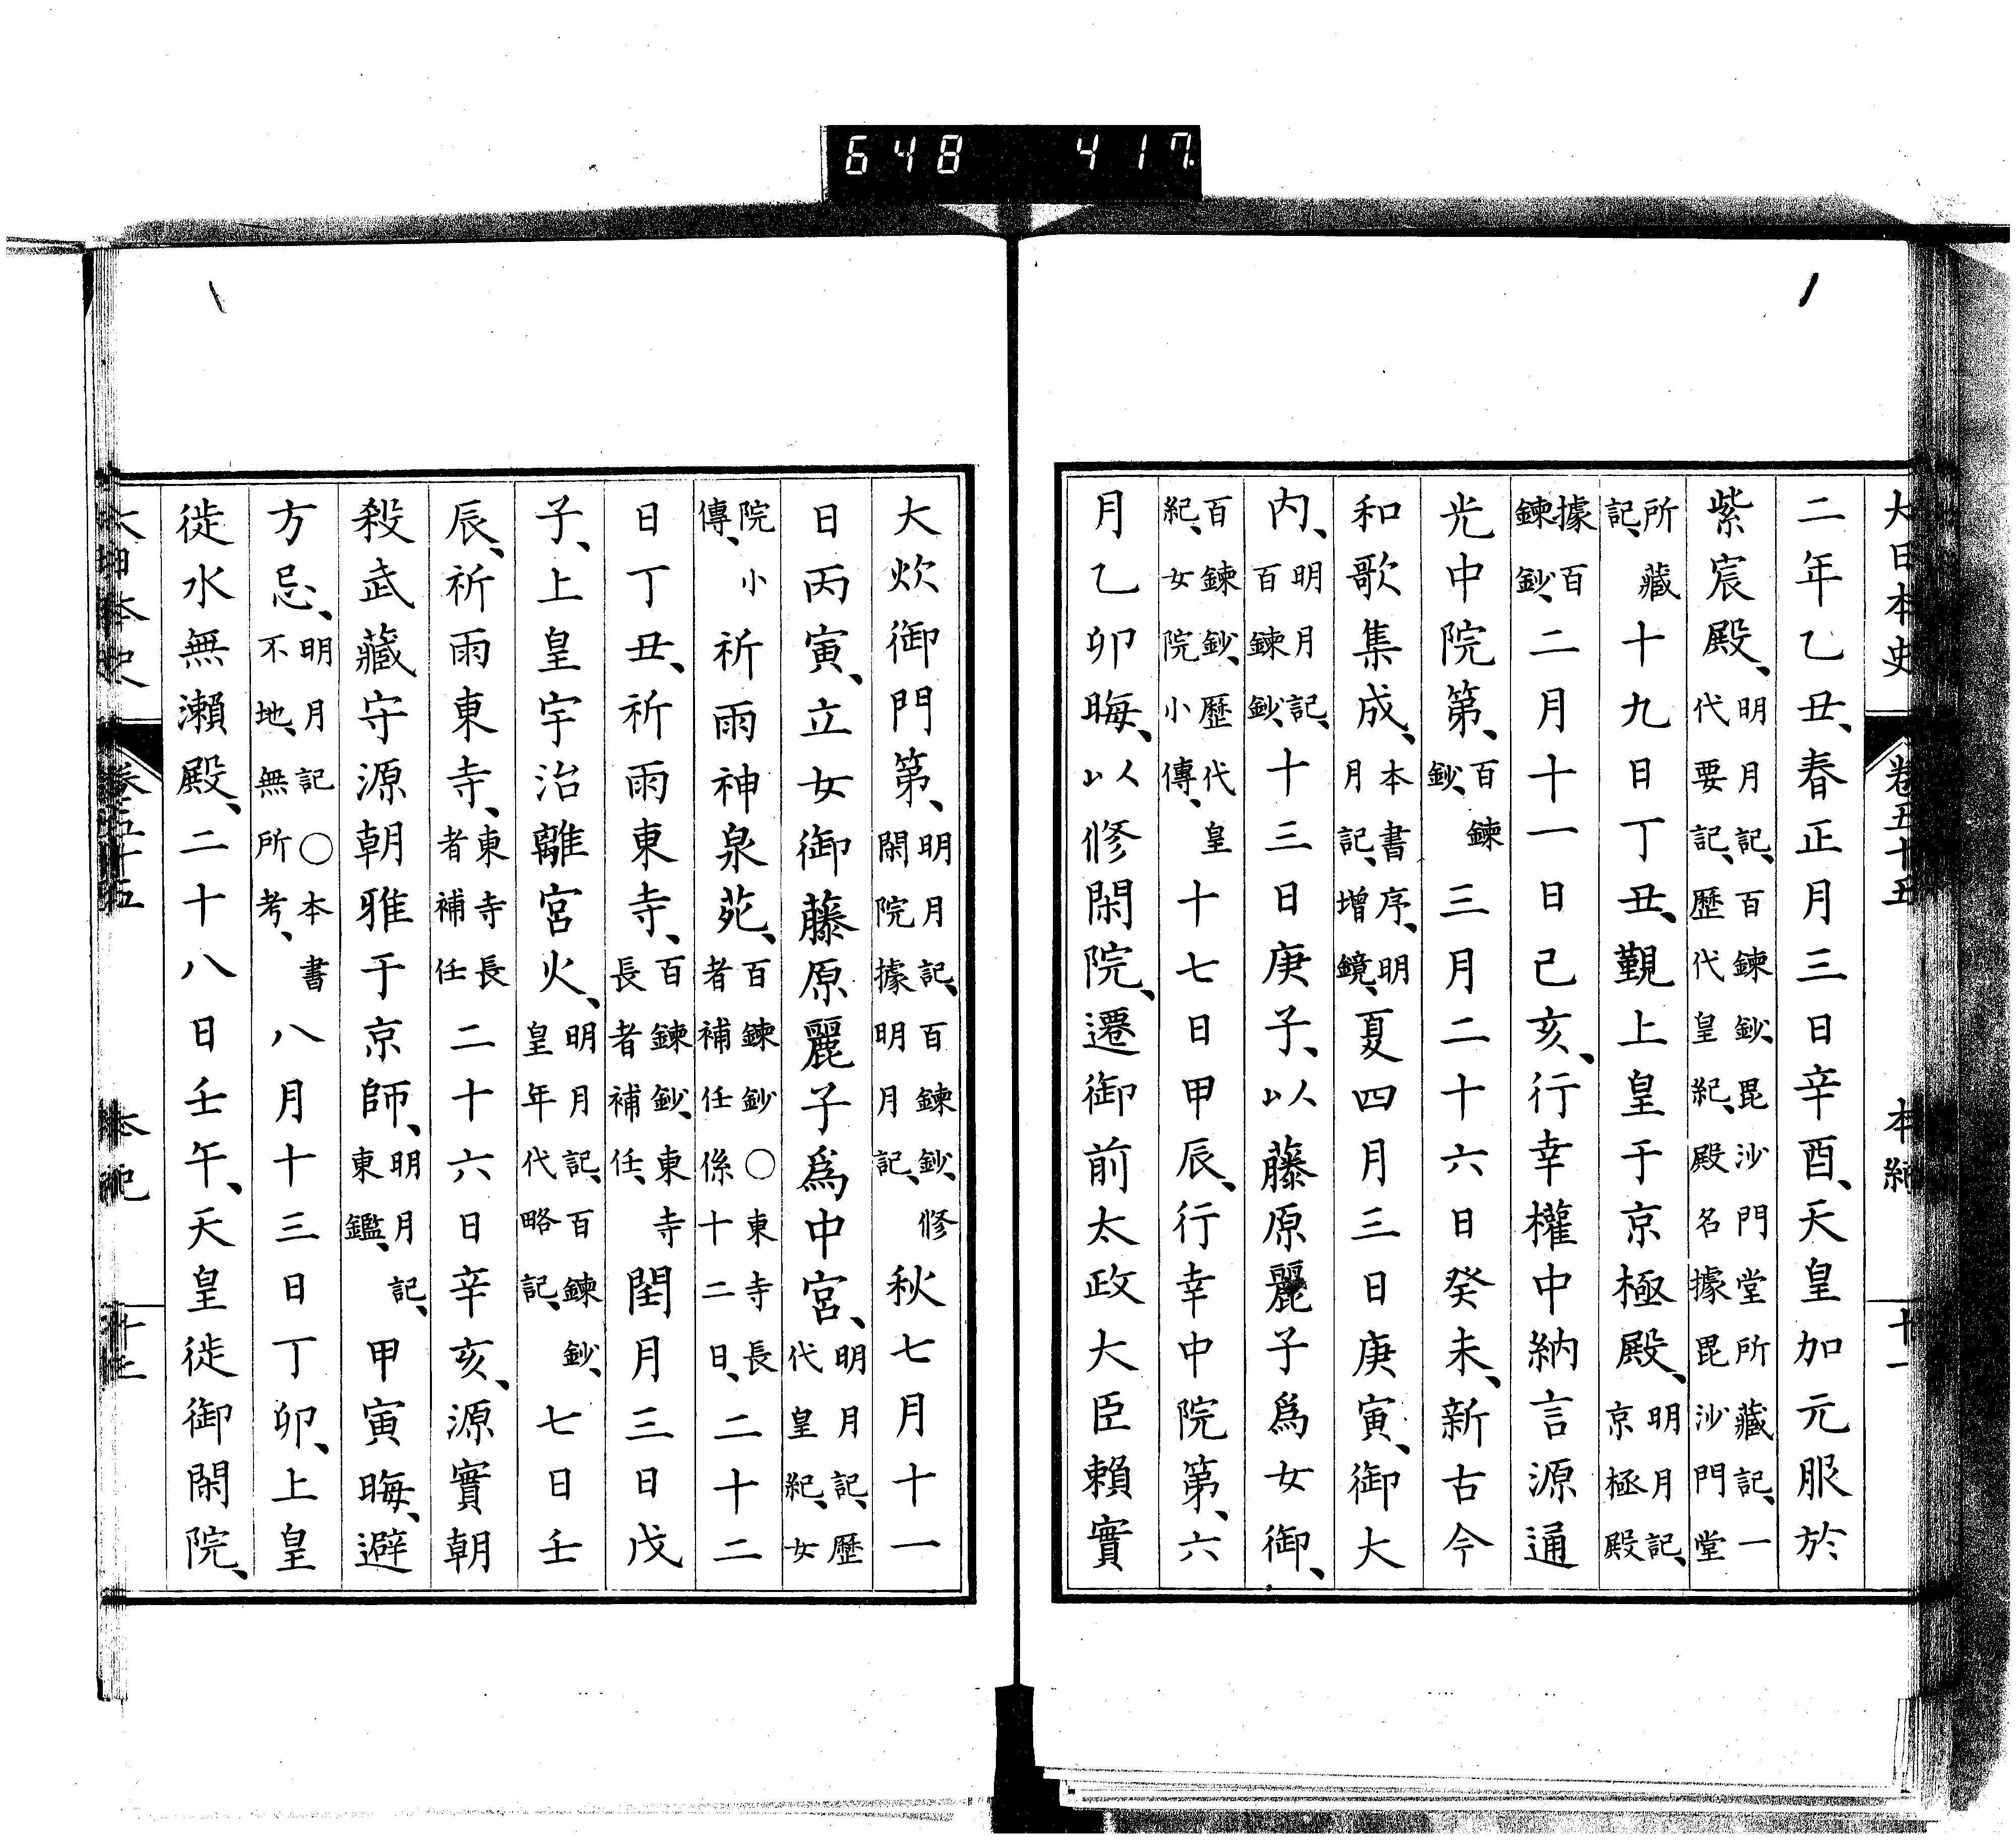 648 417
大日本史 卷五十五 本紀 十一
二年乙丑、春正月三日辛酉、天皇加元服於
紫宸殿、明月記、百鍊鈔、毘沙門堂所藏記、一代要記、歷代皇紀、殿名據毘沙門堂
所藏記、十九日丁丑、覲上皇于京極殿、明月記、京極殿
據百鍊鈔、二月十一日己亥、行幸權中納言源通
光中院第、百鍊鈔、三月二十六日癸未、新古今
和歌集成、本書序、明月記、增鏡、夏四月三日庚寅、御大
內、明月記、百鍊鈔、十三日庚子、以藤原麗子爲女御、
百鍊鈔、歷代皇紀、女院小傳、十七日甲辰、行幸中院第、六
月乙卯晦、以修閑院、遷御前太政大臣賴實
大炊御門第、明月記、百鍊鈔、修閑院據明月記、秋七月十一
日丙寅、立女御藤原麗子爲中宮、明月記、歷代皇紀、女
院小傳、祈雨神泉苑、百鍊鈔○東寺長者補任係十二日、二十二
日丁丑、祈雨東寺、百鍊鈔、東寺長者補任、閏月三日戊
子、上皇宇治離宮火、明月記、百鍊鈔、皇年代略記、七日壬
辰、祈雨東寺、東寺長者補任二十六日辛亥、源實朝
殺武藏守源朝雅于京師、明月記、東鑑、甲寅晦、避
方忌、明月記○本書不地、無所考、八月十三日丁卯、上皇
徙水無瀨殿、二十八日壬午、天皇徙御閑院、
大日本史 卷五十五 本紀